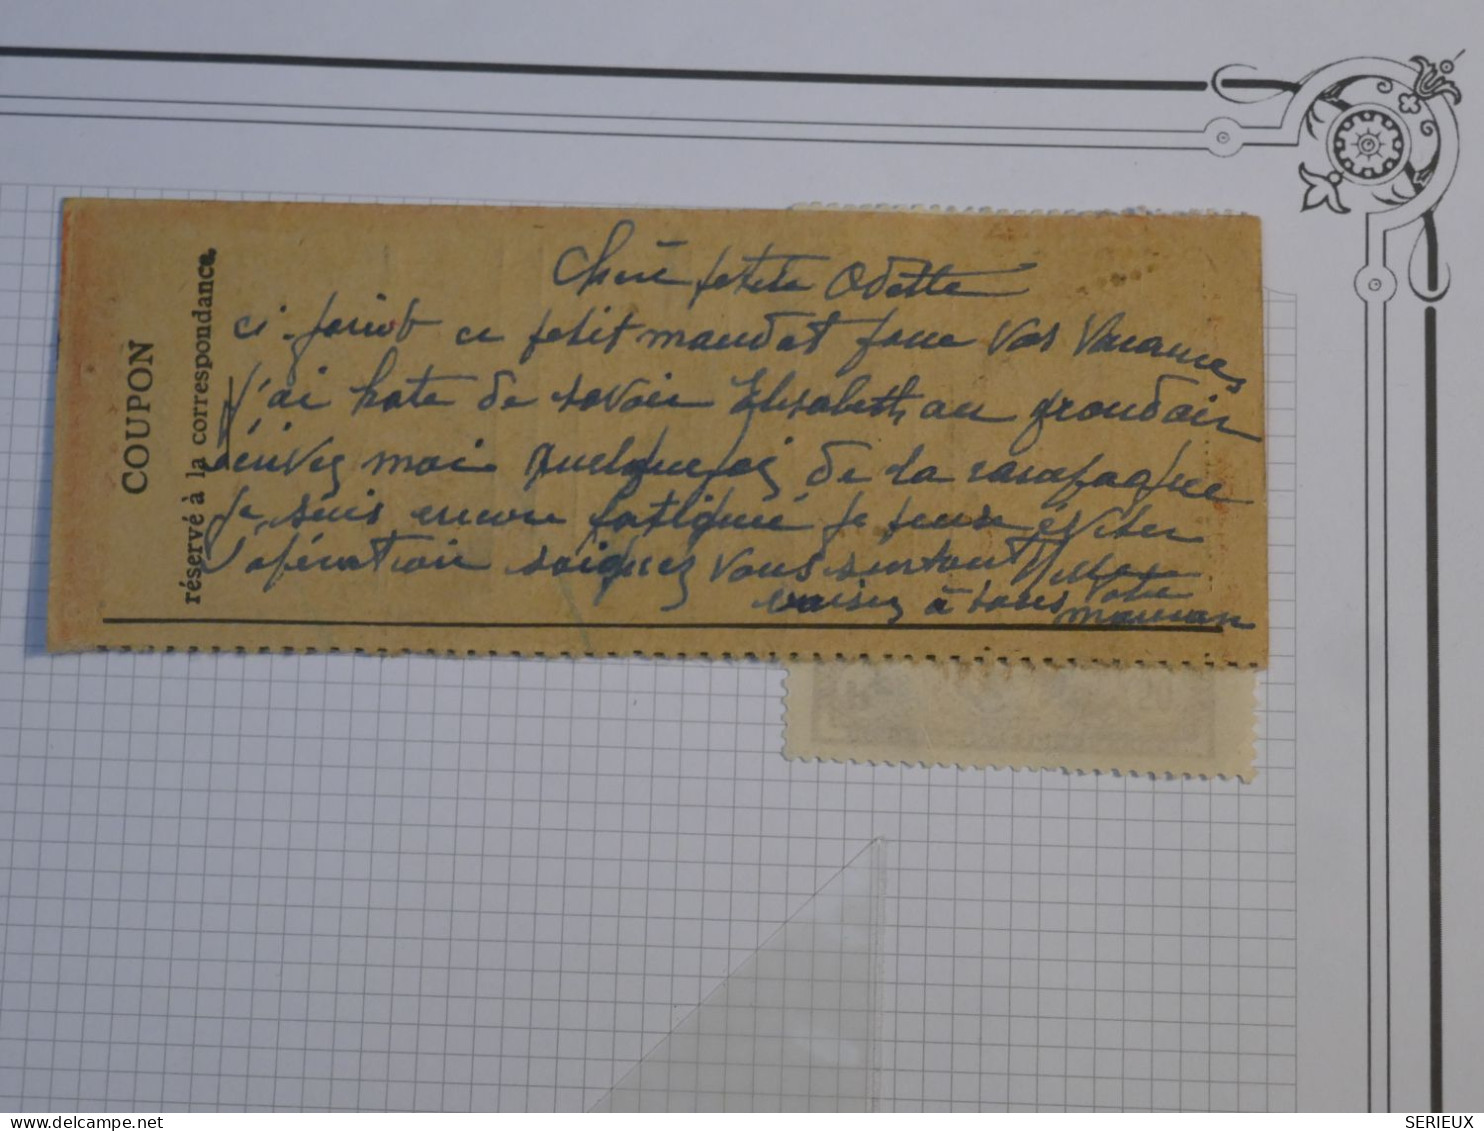 COUPON
réservé à la correspondance.
Chère petite Odette
ci-joint ce petit mandat pour vos vacances
j'ai hate de savoir Elisabeth au grand air
écrivez moi quelquefois de la campagne
je suis encore fatiguée je peux éviter
l'opération soignez vous surtout
baisers à tous votre
maman
SERIEUX
delcampe.net